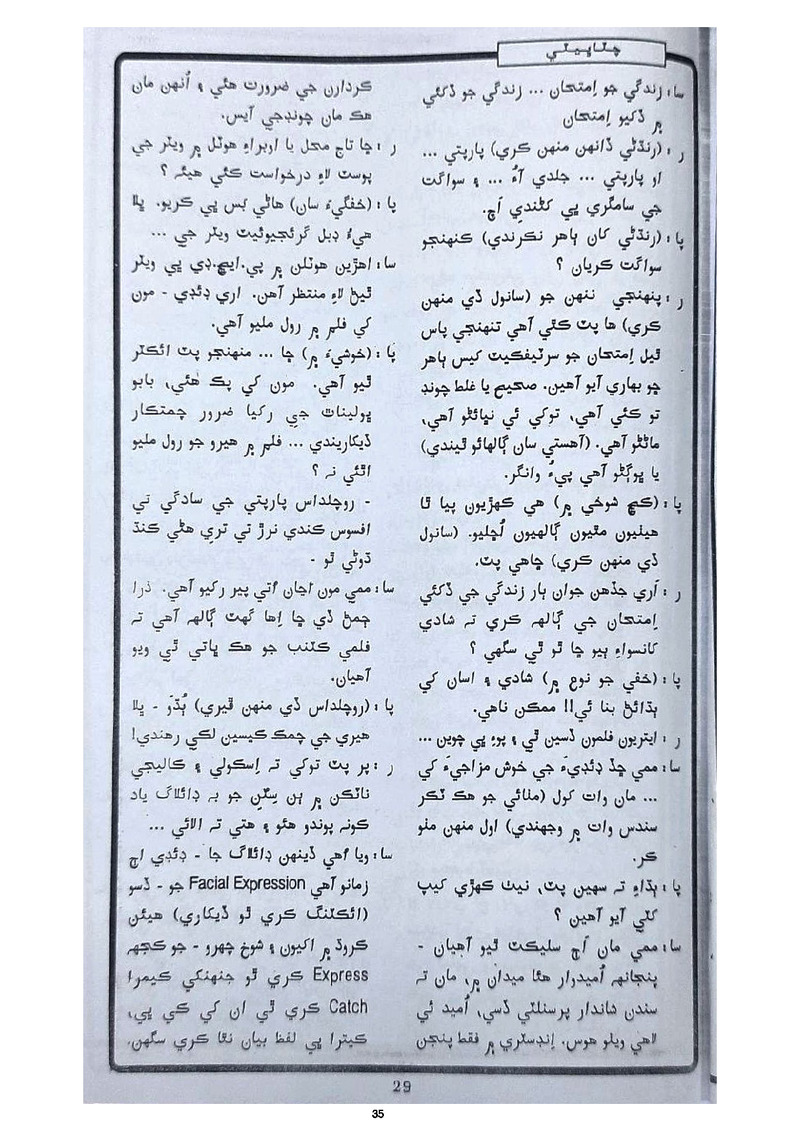 چٽاڀيٽي
سا: زندگي جو اِمتحان ... زندگي جو ڏکئي
۾ ڏکيو اِمتحان
ر : (رنڌڻي ڏانهن منهن ڪري) پارپتي ...
او پارپتي ... جلدي آءُ ... ۽ سواگت
جي سامگري ڀي کڻندي اَچ.
پا : (رنڌڻي کان ٻاهر نڪرندي) ڪنهنجو
سواگت ڪريان ؟
ر : پنهنجي ننهن جو (سانول ڏي منهن
ڪري) ها پٽ ڪٿي آهي تنهنجي پاس
ٿيل اِمتحان جو سرٽيفڪيٽ ڪيس ٻاهر
ڇو بهاري آيو آهين. صحيح يا غلط چونڊ
تو ڪئي آهي، توکي ئي نڀائڻو آهي،
ماڻڻو آهي. (آهستي سان ڳالهائو ٿيندي)
يا ڀوڳڻو آهي پيءُ وانگر.
پا : (ڪڇ شوخي ۾) هي ڪهڙيون پيا ٿا
هيٺيون مٿيون ڳالهيون اُڇليو. (سانول
ڏي منهن ڪري) ڇاهي پٽ.
ر : اَري جڏهن جوان ٻار زندگي جي ڏکئي
اِمتحان جي ڳالهہ ڪري تہ شادي
کانسواءِ ٻيو ڇا ٿو ٿي سگهي ؟
پا : (خفي جو نوع ۾) شادي ۽ اسان کي
ٻڌائڻ بنا ئي!! ممڪن ناهي.
ر : ايتريون فلمون ڏسين ٿي ۽ پوءِ ڀي چوين ...
سا: ممي ڇڏ ڊئڊيءَ جي خوش مزاجيءَ کي
... مان وات کول (مٺائي جو هڪ ٽڪر
سندس وات ۾ وجهندي) اول منهن مٺو
ڪر.
پا : ٻڌاءِ تہ سهين پٽ، نيٺ ڪهڙي کيپ
کٽي آيو آهين ؟
سا: ممي مان اَڄ سليڪٽ ٿيو آهيان -
پنجانهہ اُميدوار هئا ميدان ۾، مان تہ
سندن شاندار پرسنلٽي ڏسي، اُميد ئي
لاهي ويٺو هوس. اِنڊسٽري ۾ فقط پنجن
ڪردارن جي ضرورت هئي ۽ اُنهن مان
هڪ مان چونڊجي آيس.
ر : ڇا تاج محل يا اوبراءِ هوٽل ۾ ويٽر جي
پوسٽ لاءِ درخواست ڪئي هيئہ ؟
پا : (خفگيءَ سان) هاڻي بَس ڀي ڪريو. ڀلا
هيءُ ڊبل گرئجيوئيٽ ويٽر جي ...
سا: اهڙين هوٽلن ۾ پي.ايڇ.ڊي ڀي ويٽر
ٿيڻ لاءِ منتظر آهن. اري ڊئڊي - مون
کي فلم ۾ رول مليو آهي.
پا : (خوشيءَ ۾) ڇا ... منهنجو پٽ ائڪٽر
ٿيو آهي. مون کي پڪ هُئي، بابو
ڀولينات جي رکيا ضرور چمتڪار
ڏيکاريندي ... فلم ۾ هيرو جو رول مليو
اٿئي نہ ؟
- روچلداس پارپتي جي سادگي تي
افسوس ڪندي نرڙ تي تري هڻي ڪنڌ
ڌوڻي ٿو -
سا: ممي مون اڃان اُتي پير رکيو آهي. ذرا
ڄمڻ ڏي ڇا اِها گهٽ ڳالهہ آهي تہ
فلمي ڪٽنب جو هڪ ڀاتي ٿي ويو
آهيان.
پا : (روچلداس ڏي منهن ڦيري) ٻُڌَو - ڀلا
هيري جي چمڪ ڪيسين لڪي رهندي!
ر : پر پٽ توکي تہ اِسڪولي ۽ ڪاليجي
ناٽڪن ۾ ٻن سِٽن جو بہ ڊائلاگ ياد
ڪونہ پوندو هئو ۽ هتي تہ الائي ...
سا: ويا اُهي ڏينهن ڊائلاگ جا - ڊئڊي اڄ
زمانو آهي Facial Expression جو - ڏسو
(ائڪٽنگ ڪري ٿو ڏيکاري) هيئن
ڪروڌ ۾ اکيون ۽ شوخ چهرو - جو ڪجهہ
Express ڪري ٿو جنهنکي ڪيمرا
Catch ڪري ٿي ان کي ڪي ڀي،
ڪيترا ڀي لفظ بيان نٿا ڪري سگهن.
29
35